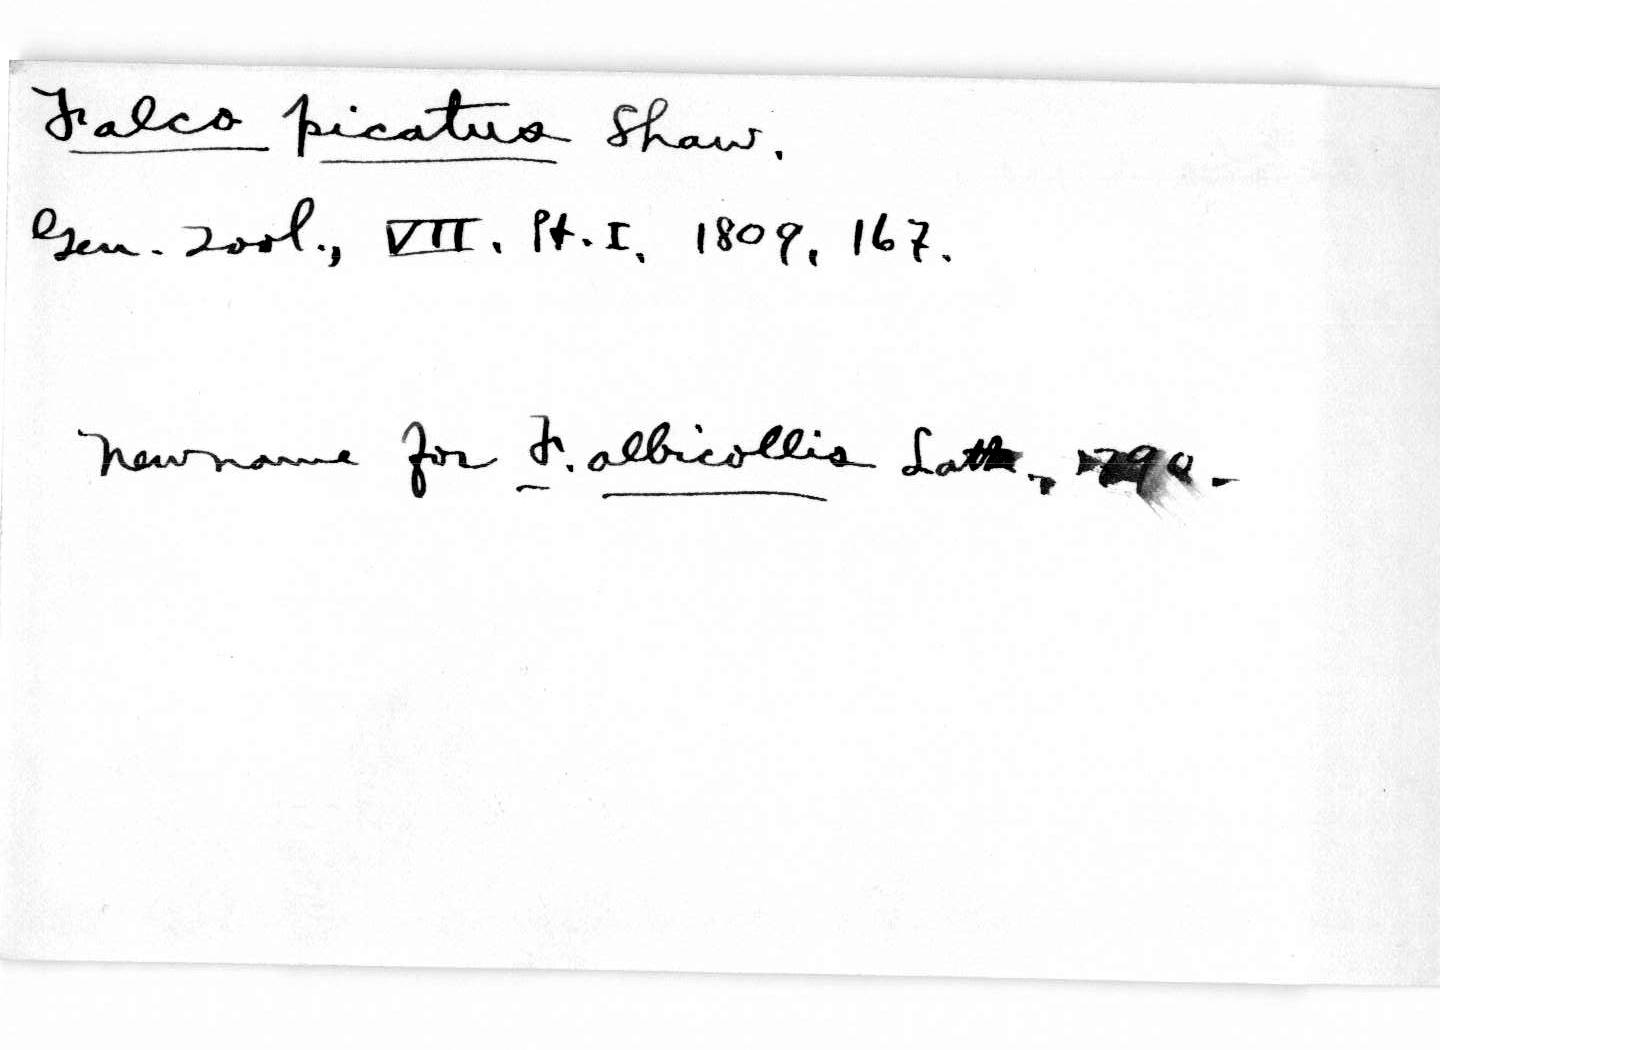 Falco picatus Shaw.
Gen. Zool., VII. Pt. I. 1809, 167.
New name for F. albicollis Lath., 1790.